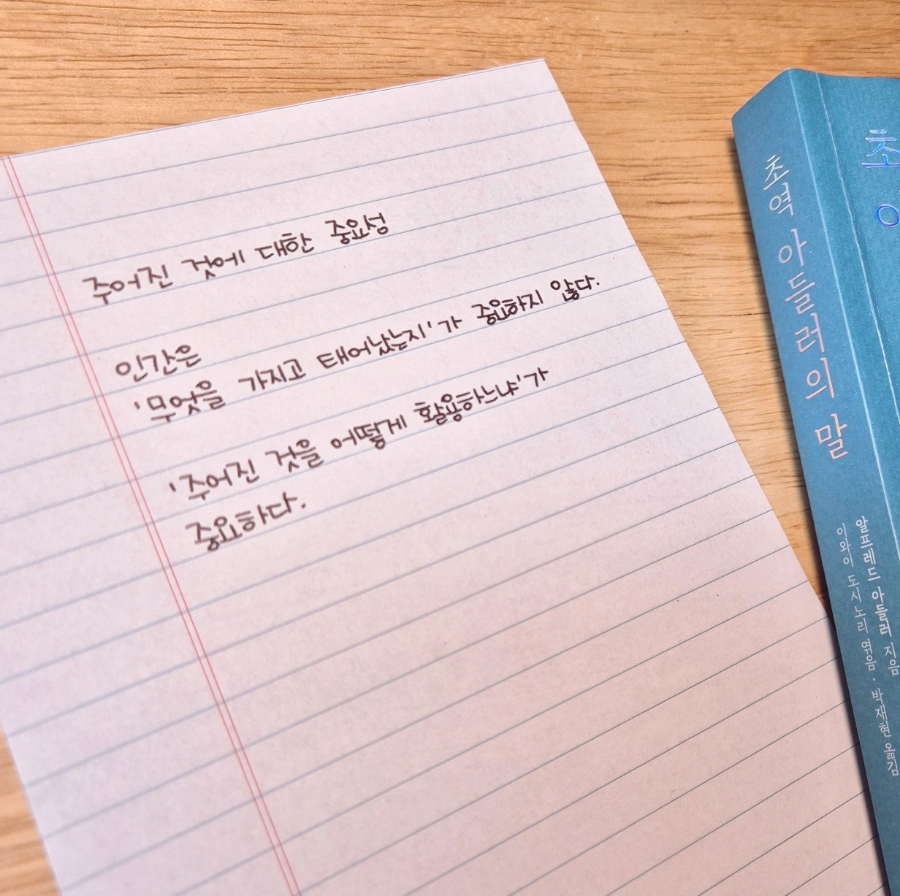 주어진 것에 대한 중요성
인간은
'무엇을 가지고 태어났는지'가 중요하지 않다.
'주어진 것을 어떻게 활용하느냐'가
중요하다.
초역 아들러의 말
알프레드 아들러 지음
이와이 도시노리 엮음 · 박재현 옮김
초